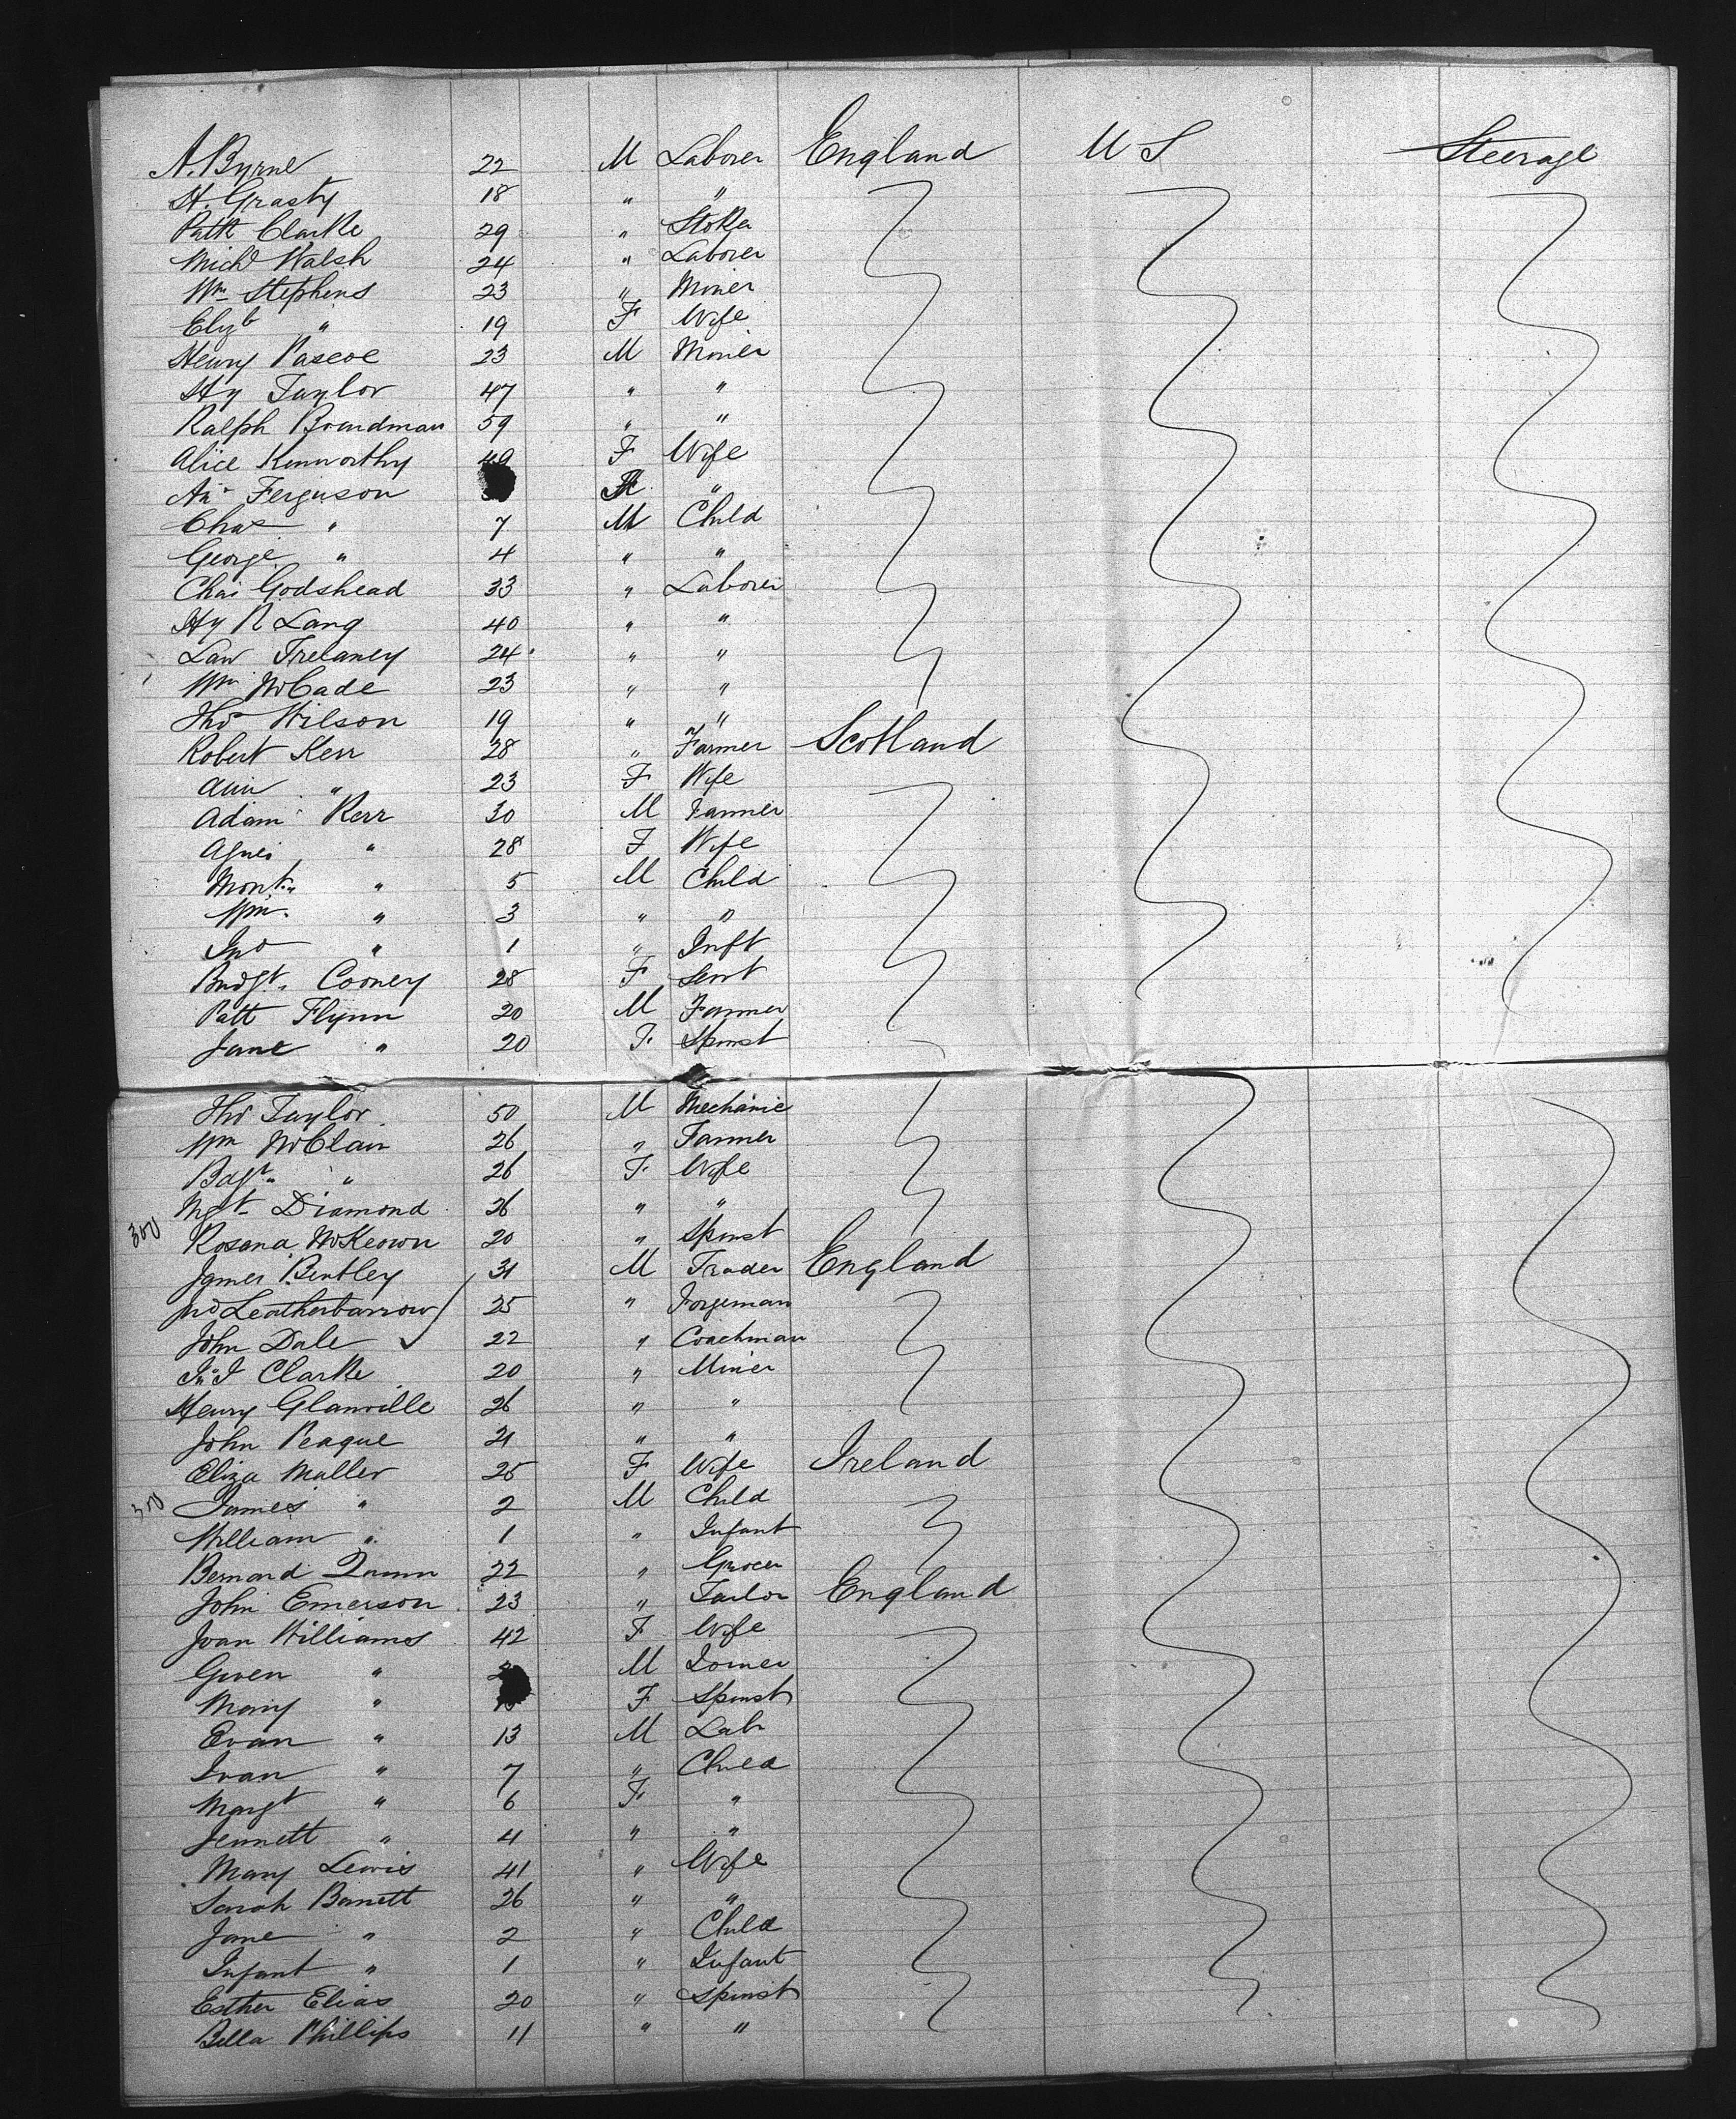 A. Byrne 22 M Laborer England U S Steerage
H. Grasty 18 " "
Patk Clarke 29 " Stoker
Michl Walsh 24 " Laborer
Wm Stephens 23 " Miner
Elizb " 19 F Wife
Henry Pascoe 23 M Miner
Hy Taylor 47 " "
Ralph Boardman 59 " "
Alice Kenworthy 49 F Wife
An Ferguson F "
Chas " 7 M Child
George " 4 " "
Chas Godshead 33 " Laborer
Hy R Lang 40 " "
Law Trelaney 24 " "
Wm McCade 23 " "
Thos Wilson 19 " "
Robert Kerr 28 " Farmer Scotland
Ann " 23 F Wife
Adam Kerr 30 M Farmer
Agnes " 28 F Wife
Mont. " 5 M Child
Wm. " 3 " "
Jno " 1 " Inft
Bridgt. Cooney 28 F Servt
Patt Flynn 20 M Farmer
Jane " 20 F. Spinst
Thos Taylor 50 M Mechanic
Wm McClain 26 " Farmer
Bdgt " 26 F. Wife
Mgt. Diamond 26 " "
300 Rosana McKeown 20 " Spinst
James Bentley 31 M Trader England
Jno Leatherbarrow 25 " Forgeman
John Dale 22 " Coachman
Jn J Clarke 20 " Miner
Henry Glanville 26 " "
John Peaque 21 " "
Eliza Maller 25 F Wife Ireland
300 James " 2 M Child
William " 1 " Infant
Bernard Quinn 22 " Grocer
John Emerson 23 " Tailor England
Joan Williams 42 F Wife
Gwen " M Joiner
Mary " F Spinst
Evan " 13 M Labr
Ivan " 7 " Child
Margt " 6 F "
Jennett " 4 " "
Mary Lewis 41 " Wife
Sarah Barnett 26 " "
Jane " 2 " Child
Infant " 1 " Infant
Esther Elias 20 " Spinst
Bella Phillips 11 " "